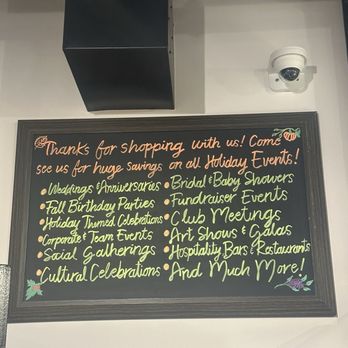 Thanks for shopping with us! Come
see us for huge savings on all Holiday Events!
• Weddings & Anniversaries
• Fall Birthday Parties
• Holiday Themed Celebrations
• Corporate & Team Events
• Social Gatherings
• Cultural Celebrations
• Bridal & Baby Showers
• Fundraiser Events
• Club Meetings
• Art Shows & Galas
• Hospitality Bars & Restaurants
• And Much More!